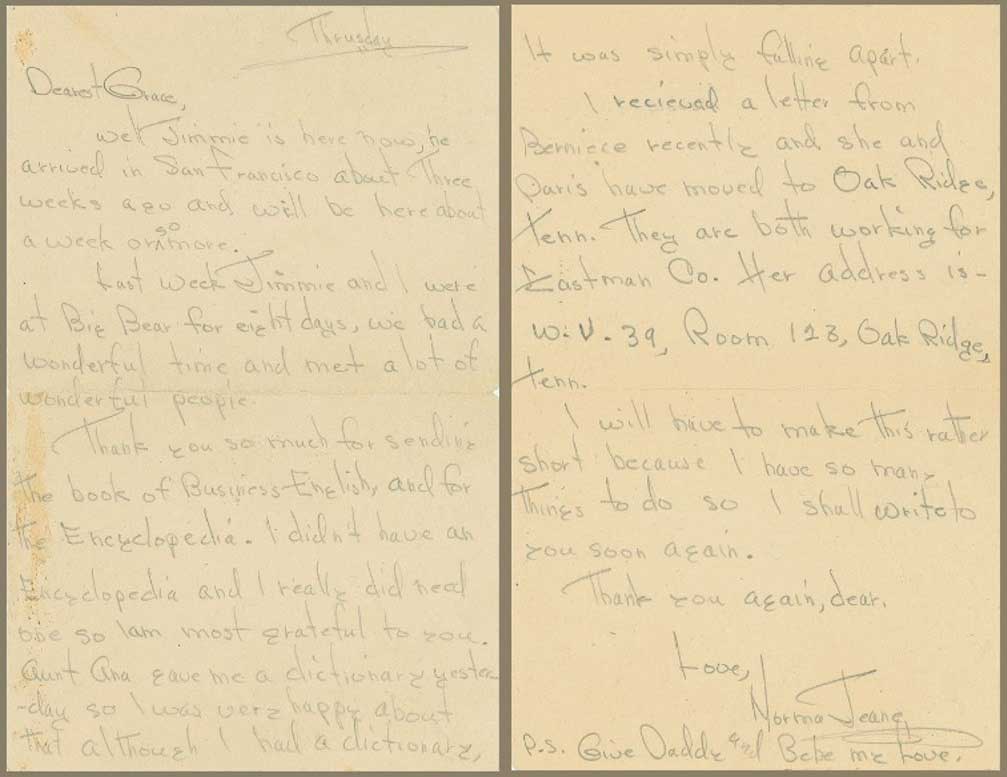 Thrusday
Dearest Grace,
Well Jimmie is here now, he
arrived in San Francisco about Three
weeks ago and will be here about
a week or so more.
Last week Jimmie and I were
at Big Bear for eight days, we had a
wonderful time and met a lot of
wonderful people.
Thank you so much for sending
the book of Business-English, and for
the Encyclopedia. I didn't have an
Encyclopedia and I really did need
one so I am most grateful to you.
Aunt Ana gave me a dictionary yester-
-day so I was very happy about
that although I had a dictionary,
It was simply falling apart.
I recieved a letter from
Berniece recently and she and
Paris have moved to Oak Ridge,
Tenn. They are both working for
Eastman Co. Her address is-
W.V. 39, Room 123, Oak Ridge,
Tenn.
I will have to make this rather
short because I have so many
Things to do so I shall write to
you soon again.
Thank you again, dear.
Love,
Norma Jeane
P.S. Give Daddy and Bebe my Love.